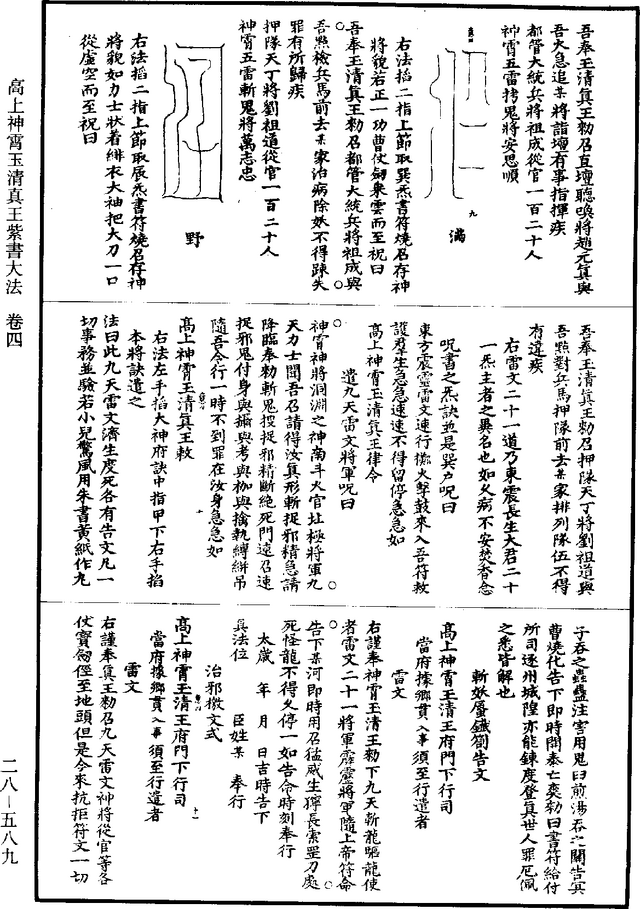 吾奉玉清真王勑召直壇聽喚將趙元真與
吾火急追某將詣壇有事指揮疾
都管大統兵將祖成從官一百二十人
神霄五雷拷鬼將安思順
滿
九
右法搯二指上節取巽炁書符燒召存神
將貌若正一功曹仗劒乘雲而至祝曰
吾奉玉清真王勑召都管大統兵將祖成與
吾點檢兵馬前去某家治病除妖不得踈失
罪有所歸疾
押隊天丁將劉祖道從官一百二十人
神霄五雷斬鬼將萬志忠
野
右法搯二指上節取辰炁書符燒召存神
將貌如力士狀着緋衣大袖把大刀一口
從虛空而至祝曰
吾奉玉清真王勑召押隊天丁將劉祖道與
吾點對兵馬押隊前去某家排列隊伍不得
有違疾
右雷文二十一道乃東震長生大君二十
一炁主者之異名也如久病不安焚香念
呪書之炁訣並是巽户呪曰
東方震靈雷文速行擲火擊鼓來入吾符救
護羣生急急速速不得留停急急如
高上神霄玉清真王律令
遣九天雷文將軍呪曰
神霄神將洞淵之神南斗火官北極將軍九
天力士聞吾召請得汝真形斬捉邪精急請
降臨奉勑斬鬼捉捉邪精斷絶死門遠召速
捉邪鬼付身與攝與考與枷與擒執縛絣吊
隨吾令行一時不到罪在汝身急急如
高上神霄玉清真王敕
十
右法左手搯大神府訣中指甲下右手搯
本將訣遣之
法曰此九天雷文濟生度死各有告文凡一
切事務並驗若小兒驚風用朱書黄紙作九
子吞之蟲蠱注害用鬼臼煎湯吞之關告真
曹燒化告下即時問泰亡奕勑曰書符給付
所司逐州城隍亦能鍊度登真世人罪厄佩
之悉皆解也
斬妖屬鐵簡告文
高上神霄玉清王府門下行司
當府據鄉貫入事須至行遣者
雷文
右謹奉神霄玉清王勑下九天斬龍驅龍使
者雷文二十一將軍霹靂將軍隨上帝符命
告下某河即時用召猛威生獰長索罡刀處
死怪龍不得久停一如告命時刻奉行
太歲年月日吉時告下
具法位臣姓某奉行
治邪檄文式
高上神霄玉清王府門下行司
十一
當府據鄉貫入事須至行遣者
雷文
右謹奉真王勑召九天雷文神將從官等各
仗寶劒徑至地頭但是今來抗拒符文一切
高上神霄玉清真王紫書大法 卷四
二八-五八九